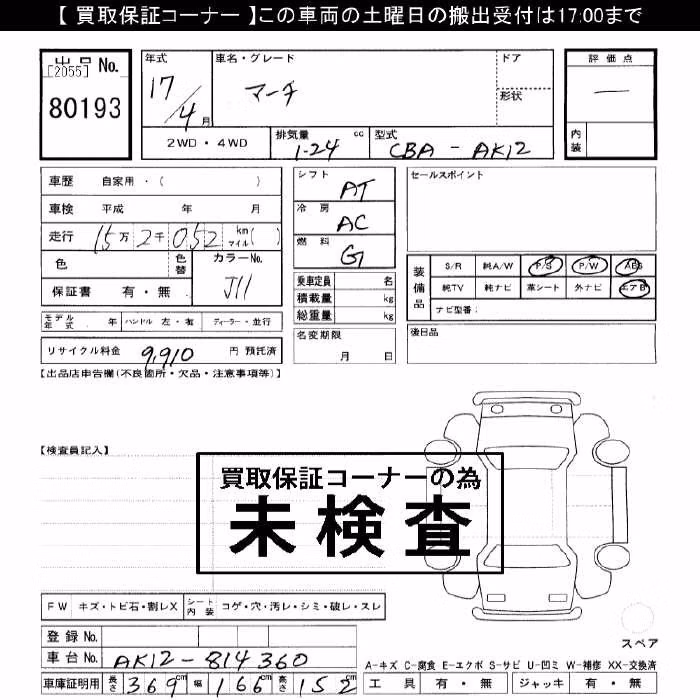 【 買取保証コーナー 】この車両の土曜日の搬出受付は17:00まで
出品 No.
[2055]
80193
年式 17/4 月
車名・グレード マーチ
ドア
形状
評価点 —
内装
2WD・4WD
排気量 1-24 cc
型式 CBA - AK12
車歴 自家用・( )
車検 平成 年 月
走行 15万2千052 km マイル( )
色
色替
カラーNo. J11
保証書 有・無
モデル年式 年 ハンドル 左・右 ディーラー・並行
リサイクル料金 9,910 円 預託済
シフト AT
冷房 AC
燃料 G
乗車定員 名
積載量 kg
総重量 kg
名変期限
月 日
セールスポイント
装備品
S/R 純A/W P/S P/W ABS
純TV 純ナビ 革シート 外ナビ エアB
ナビ型番:
後日品
【出品店申告欄(不良箇所・欠品・注意事項等)】
【検査員記入】
買取保証コーナーの為
未検査
FW キズ・トビ石・割レX シート内装 コゲ・穴・汚レ・シミ・破レ・スレ
登録 No.
車台 No. AK12-814360
車庫証明用 長さ 369 cm 幅 166 cm 高さ 152 cm
スペア
A-キズ C-腐食 E-エクボ S-サビ U-凹ミ W-補修 XX-交換済
工具 有・無 ジャッキ 有・無